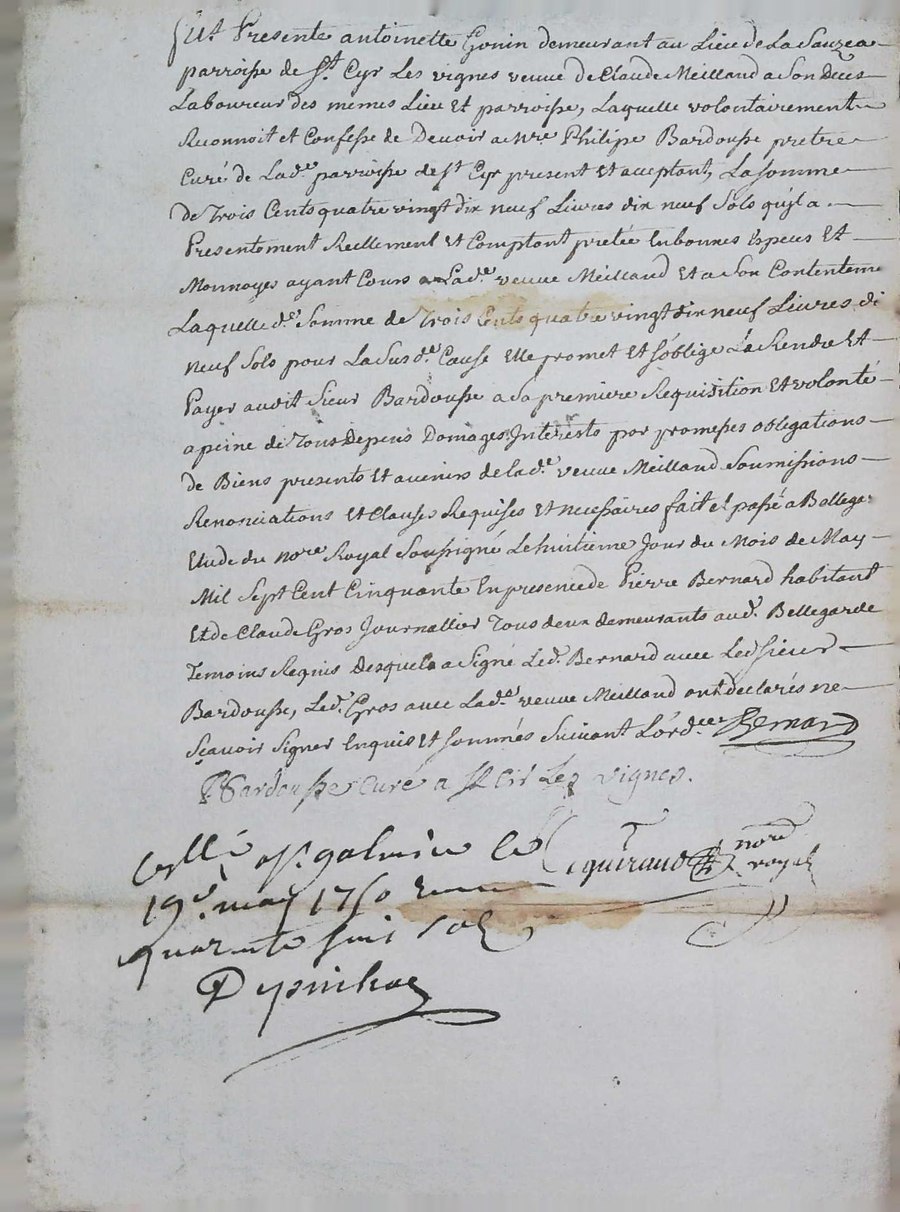 fut Presente antoinette Gonin demeurant au Lieu de La Sauzea
parroisse de St. Cyr Les vignes veuve de Claude Meilland a Son Deces
Laboureur des memes Lieu Et parroisse, Laquelle volontairement
Reconnoit et Confesse de Devoir a Mre. Philipe Bardousse pretre
Curé de Lade. parroisse de st Cyr present Et acceptant, La somme
de Trois Cents quatre vingt dix neuf Livres dix neuf Sols qu'jl a
Presentement Reellement Et Comptant pretée En bonnes Especes Et
Monnoyes ayant Cours a Lade. veuve Meilland Et a Son Contenteme
Laquelle de. Somme de Trois Cents quatre vingt dix neuf Livres di
neuf Sols pour La Sus de. Cause Elle promet Et s'oblige La Rendre Et
Payer audit Sieur Bardousse a Sa premiere Requisition Et volonté
a peine de Tous Depens Domages Interests par promesses obligations
de Biens presents Et avenirs de lade. veuve Meilland Soumissions
Renonciations Et Clauses Requises Et necessaires fait et passé a Bellega
Etude du nore. Royal Soussigné Le huitieme Jour du Mois de May
Mil Sept Cent Cinquante En presence de Pierre Bernard habitant
Et de Claude Gros Journallier Tous deux demeurants aud. Bellegarde
Temoins Requis Desquels a Signé Led. Bernard avec Led Sieur
Bardousse, Led. Gros avec Lade. veuve Meilland ont declarés ne
Sçavoir Signer Enquis Et Sommés Suivant L'ordce. Bernard
Bardousse Curé a St Cir Les vignes.
a St. galmier le nore
19e. may 1750 royal
quarante sols